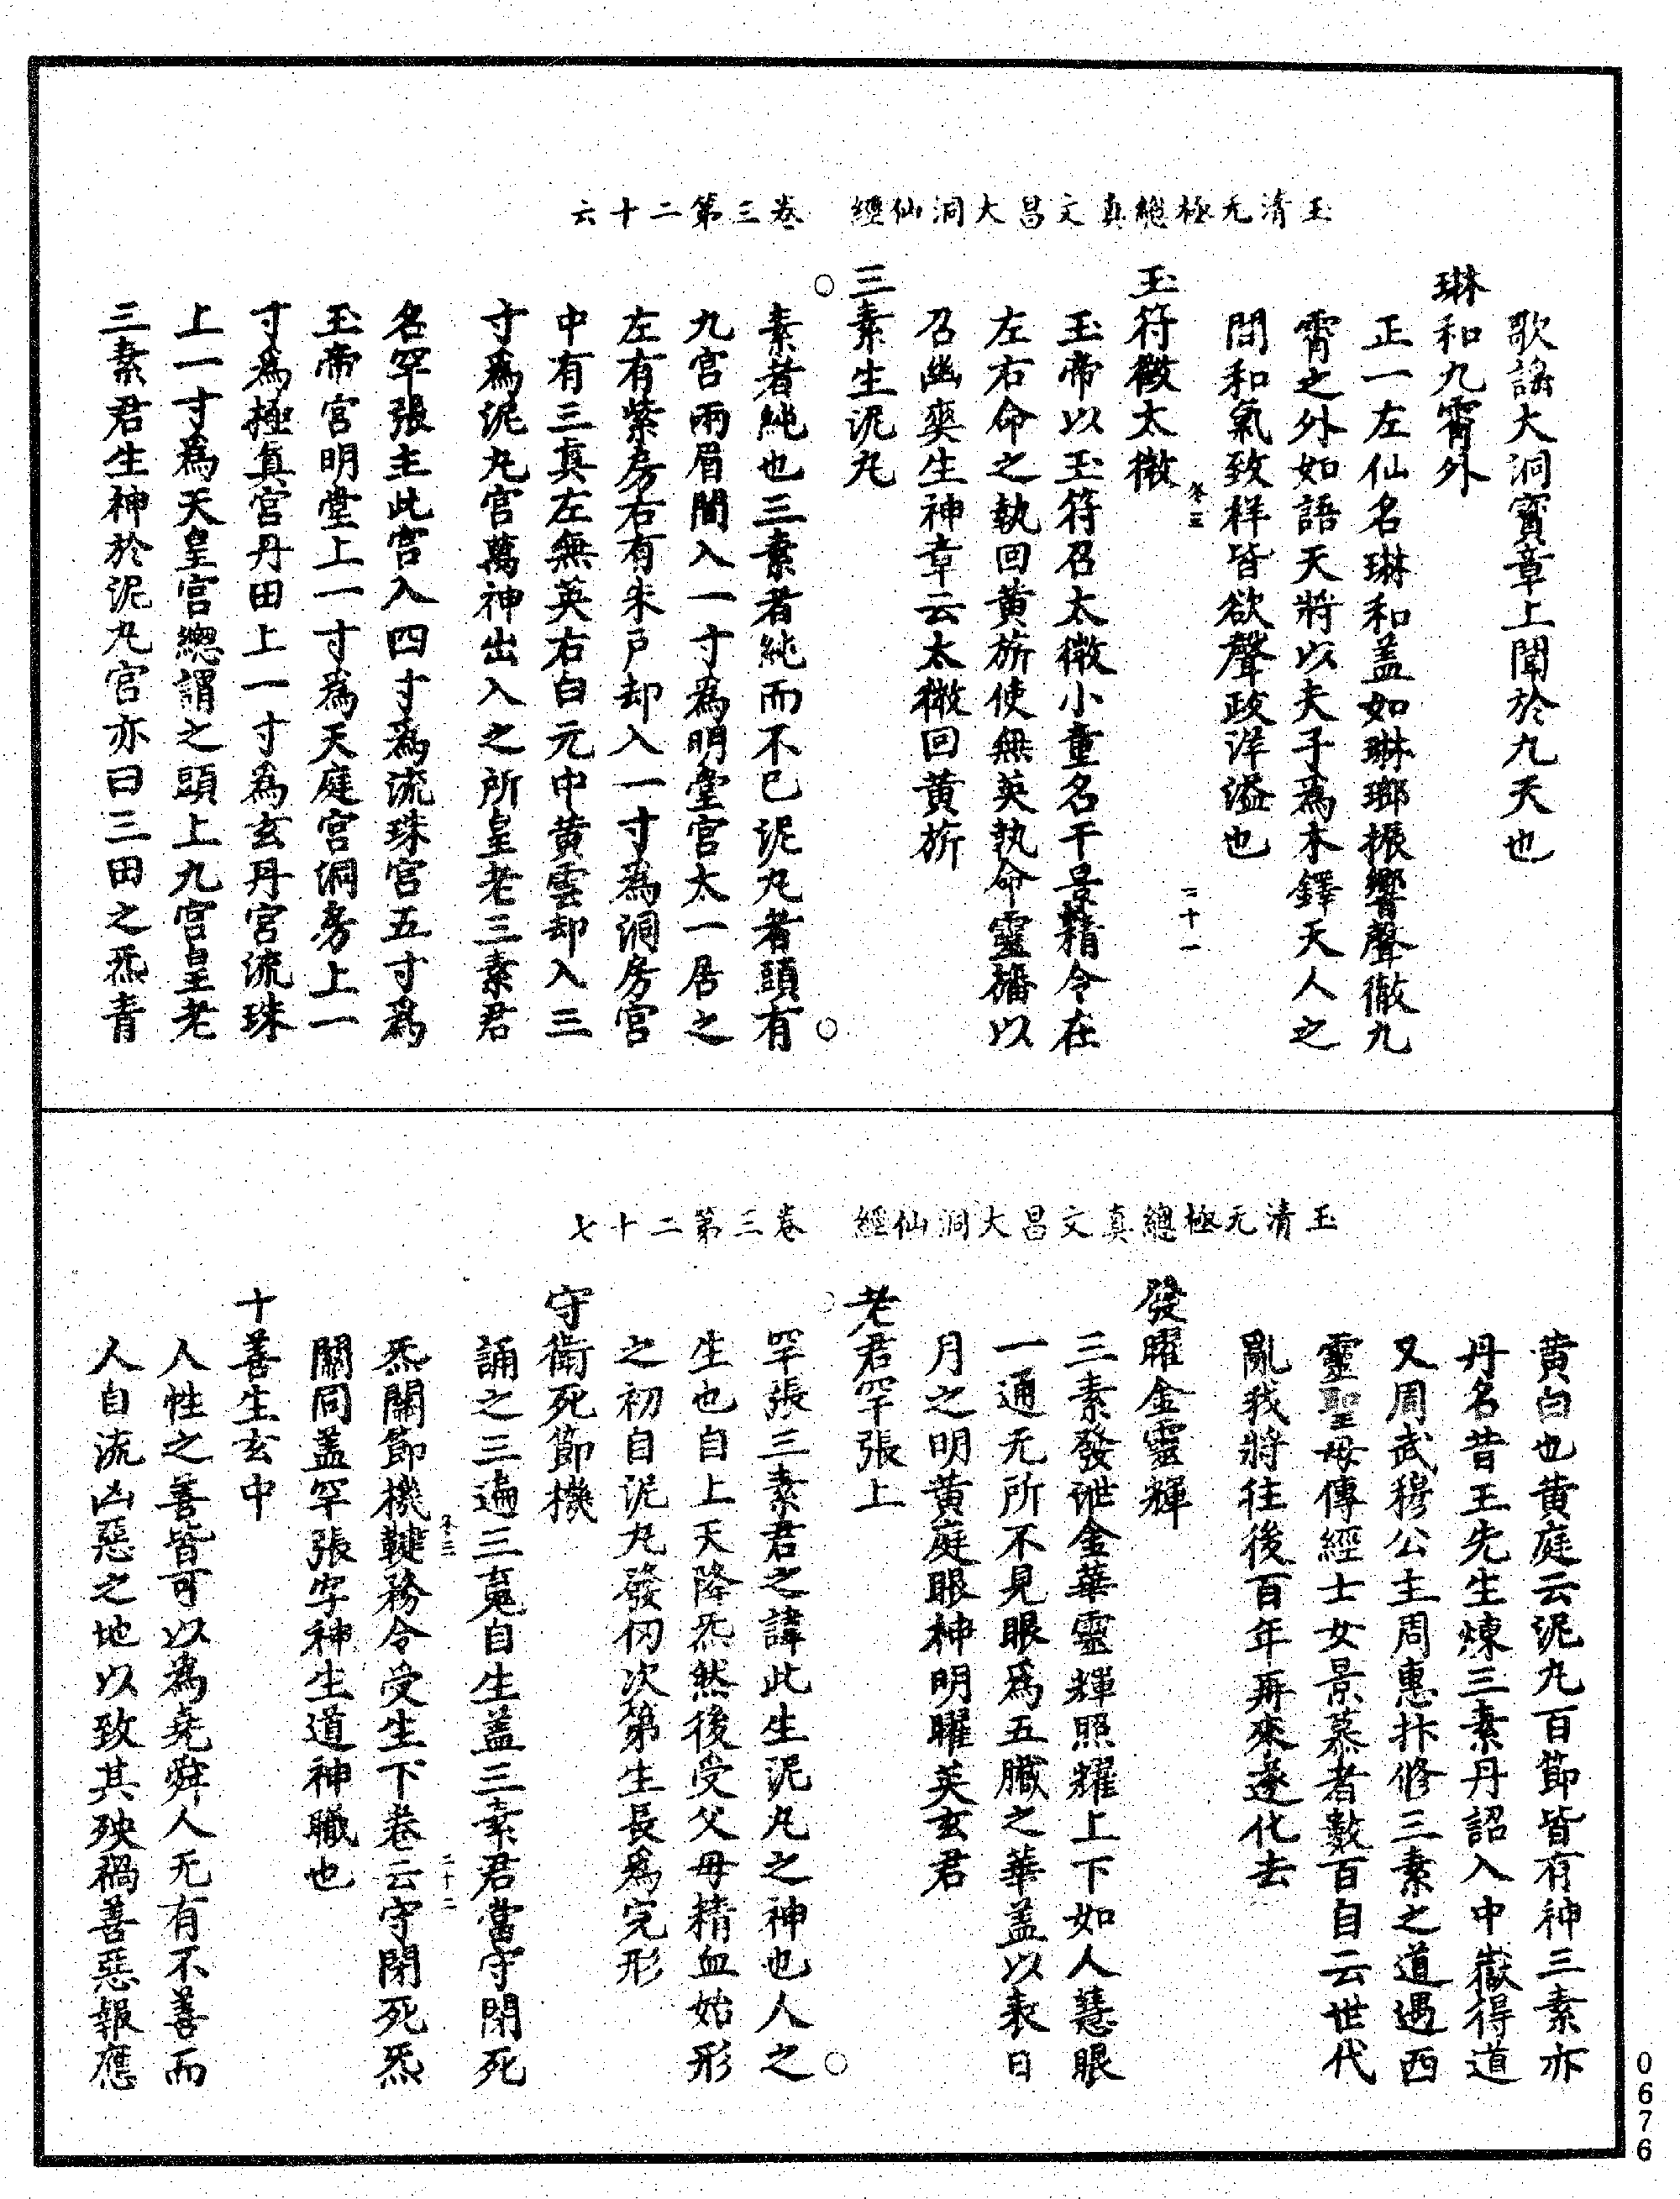 玉清无極總真文昌大洞仙經　卷三第二十六
歌謠大洞寶章上聞於九天也
琳和九霄外
正一左仙名琳和蓋如琳瑯振響聲徹九
霄之外如語天將以夫子為木鐸天人之
間和氣致祥皆欲聲政洋溢也
冬三　二十一
玉符徵太微
玉帝以玉符召太微小童名干景精令在
左右命之執回黃旂使無英執命靈旛以
召幽爽生神章云太微回黃旂
三素生泥丸
素者純也三素者純而不已泥丸者頭有
九宮兩眉間入一寸為明堂宮太一居之
左有紫房右有朱戶却入一寸為洞房宮
中有三真左無英右白元中黃雲却入三
寸爲泥丸宮萬神出入之所皇老三素君
名罕張主此宮入四寸爲流珠宮五寸爲
玉帝宮明堂上一寸為天庭宮洞房上一
寸爲極真宮丹田上一寸為玄丹宮流珠
上一寸爲天皇宮總謂之頭上九宮皇老
三素君生神於泥丸宮亦曰三田之炁青
玉清无極總真文昌大洞仙經　卷三第二十七
黃白也黃庭云泥丸百節皆有神三素亦
丹名昔王先生煉三素丹詔入中嶽得道
又周武穆公主周惠抃修三素之道遇西
靈聖母傳經士女景慕者數百自云世代
亂我將往後百年再來遂化去
發曜金靈輝
三素發泄金華靈輝照耀上下如人慧眼
一通无所不見眼爲五臟之華蓋以表日
月之明黃庭眼神明曜英玄君
老君罕張上
罕張三素君之諱此生泥丸之神也人之
生也自上天降炁然後受父母精血始形
之初自泥丸發仞次第生長爲完形
守衛死節機
誦之三遍三䰟自生蓋三素君當守閉死
冬三　二十二
炁關節機鞬務令受生下卷云守閉死炁
關同蓋罕張字神生道神職也
十善生玄中
人性之善皆可以為堯舜人无有不善而
人自流凶惡之地以致其殃禍善惡報應
0676